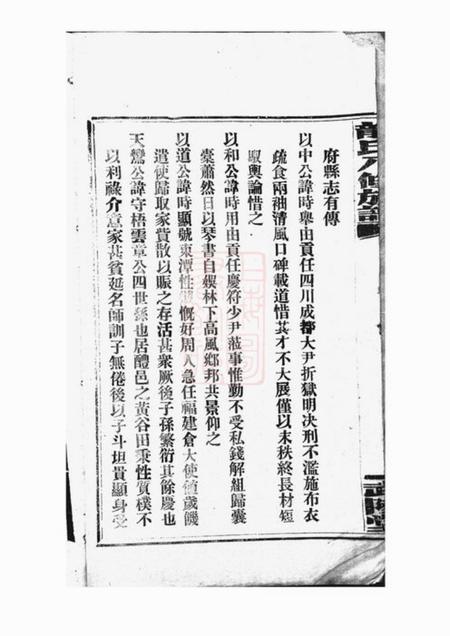 府縣志有傳
以中公諱時舉由貢任四川成都大尹折獄明決刑不濫施布衣
疏食兩袖清風口碑載道惜其才不大展僅以末秩終長材短
馭輿論惜之
以和公諱時用由貢任慶符少尹蒞事惟勤不受私錢解組歸囊
橐蕭然日以琴書自娛林下高風鄉邦共景仰之
以道公諱時顯號東潭性慷慨好周人急任福建倉大使値歲饑
遣使歸取家貲散以賑之存活甚衆厥後子孫繁衍其餘慶也
天鸞公諱守梧雲章公四世孫也居醴邑之黃谷田秉性質樸不
以利祿介意家甚貧延名師訓子無倦後以子斗坦貴顯身受
氏八修族譜
武陵堂